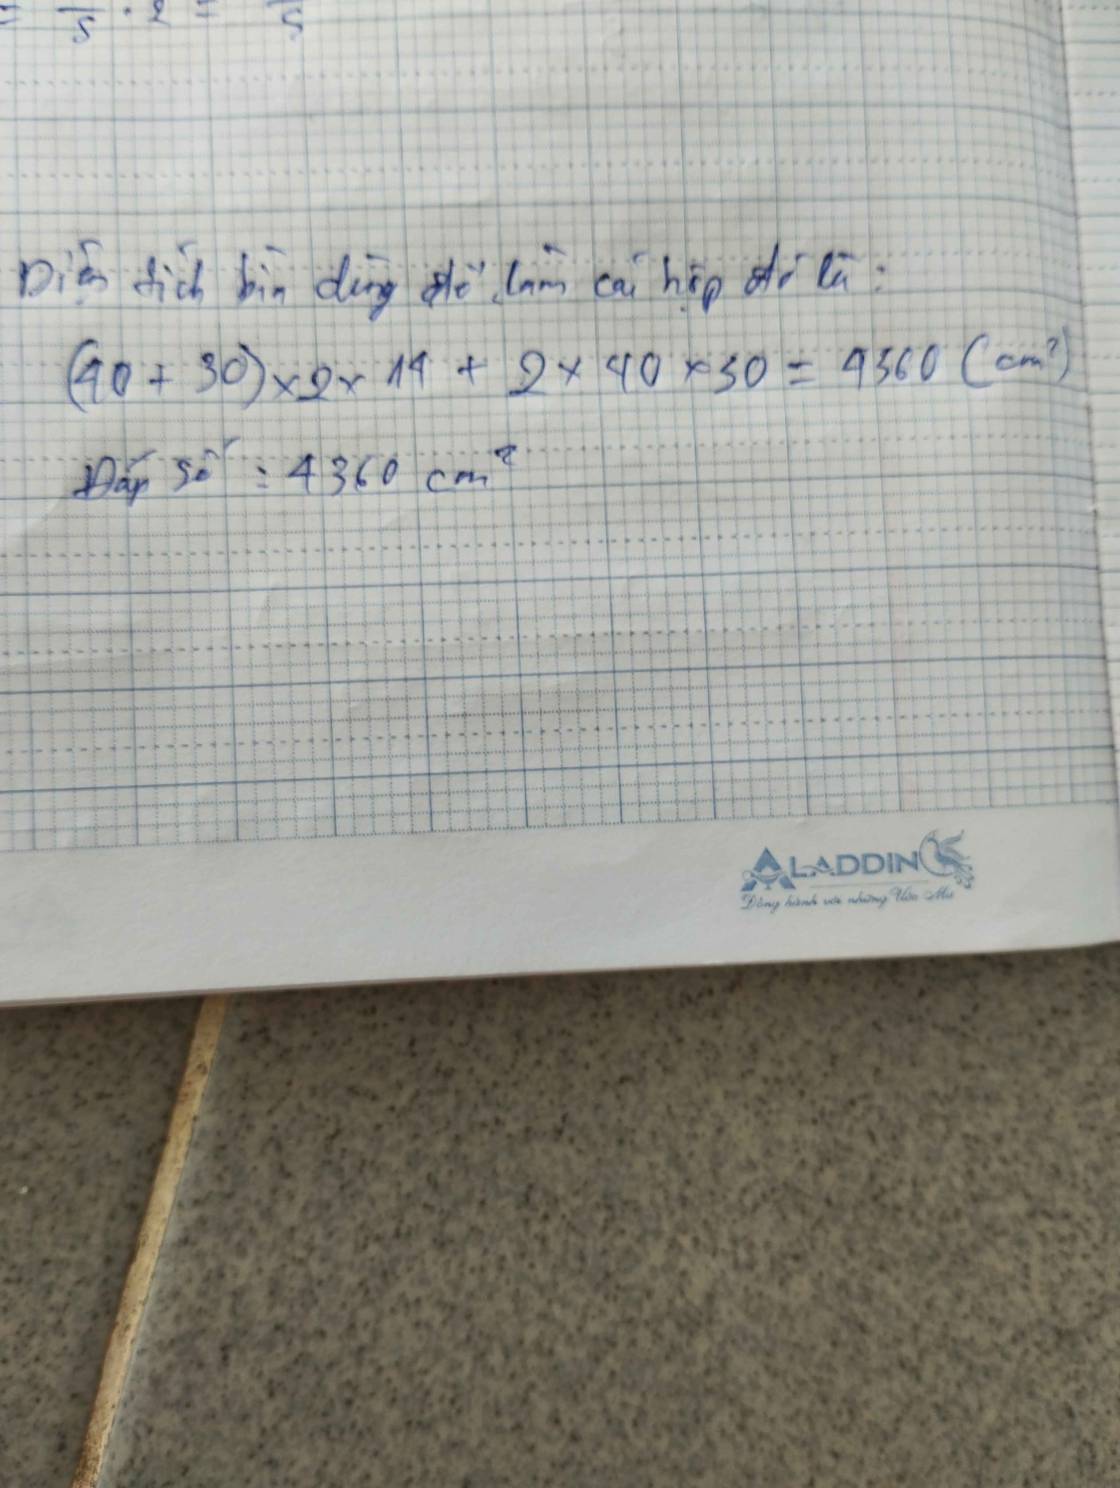 = /5 . 2 = /5
Diện tích bìa dùng để làm cái hộp đó là:
(40 + 30) x 2 x 14 + 2 x 40 x 30 = 4360 (cm²)
Đáp số : 4360 cm²
ALADDIN
Đồng hành với những Ước Mơ